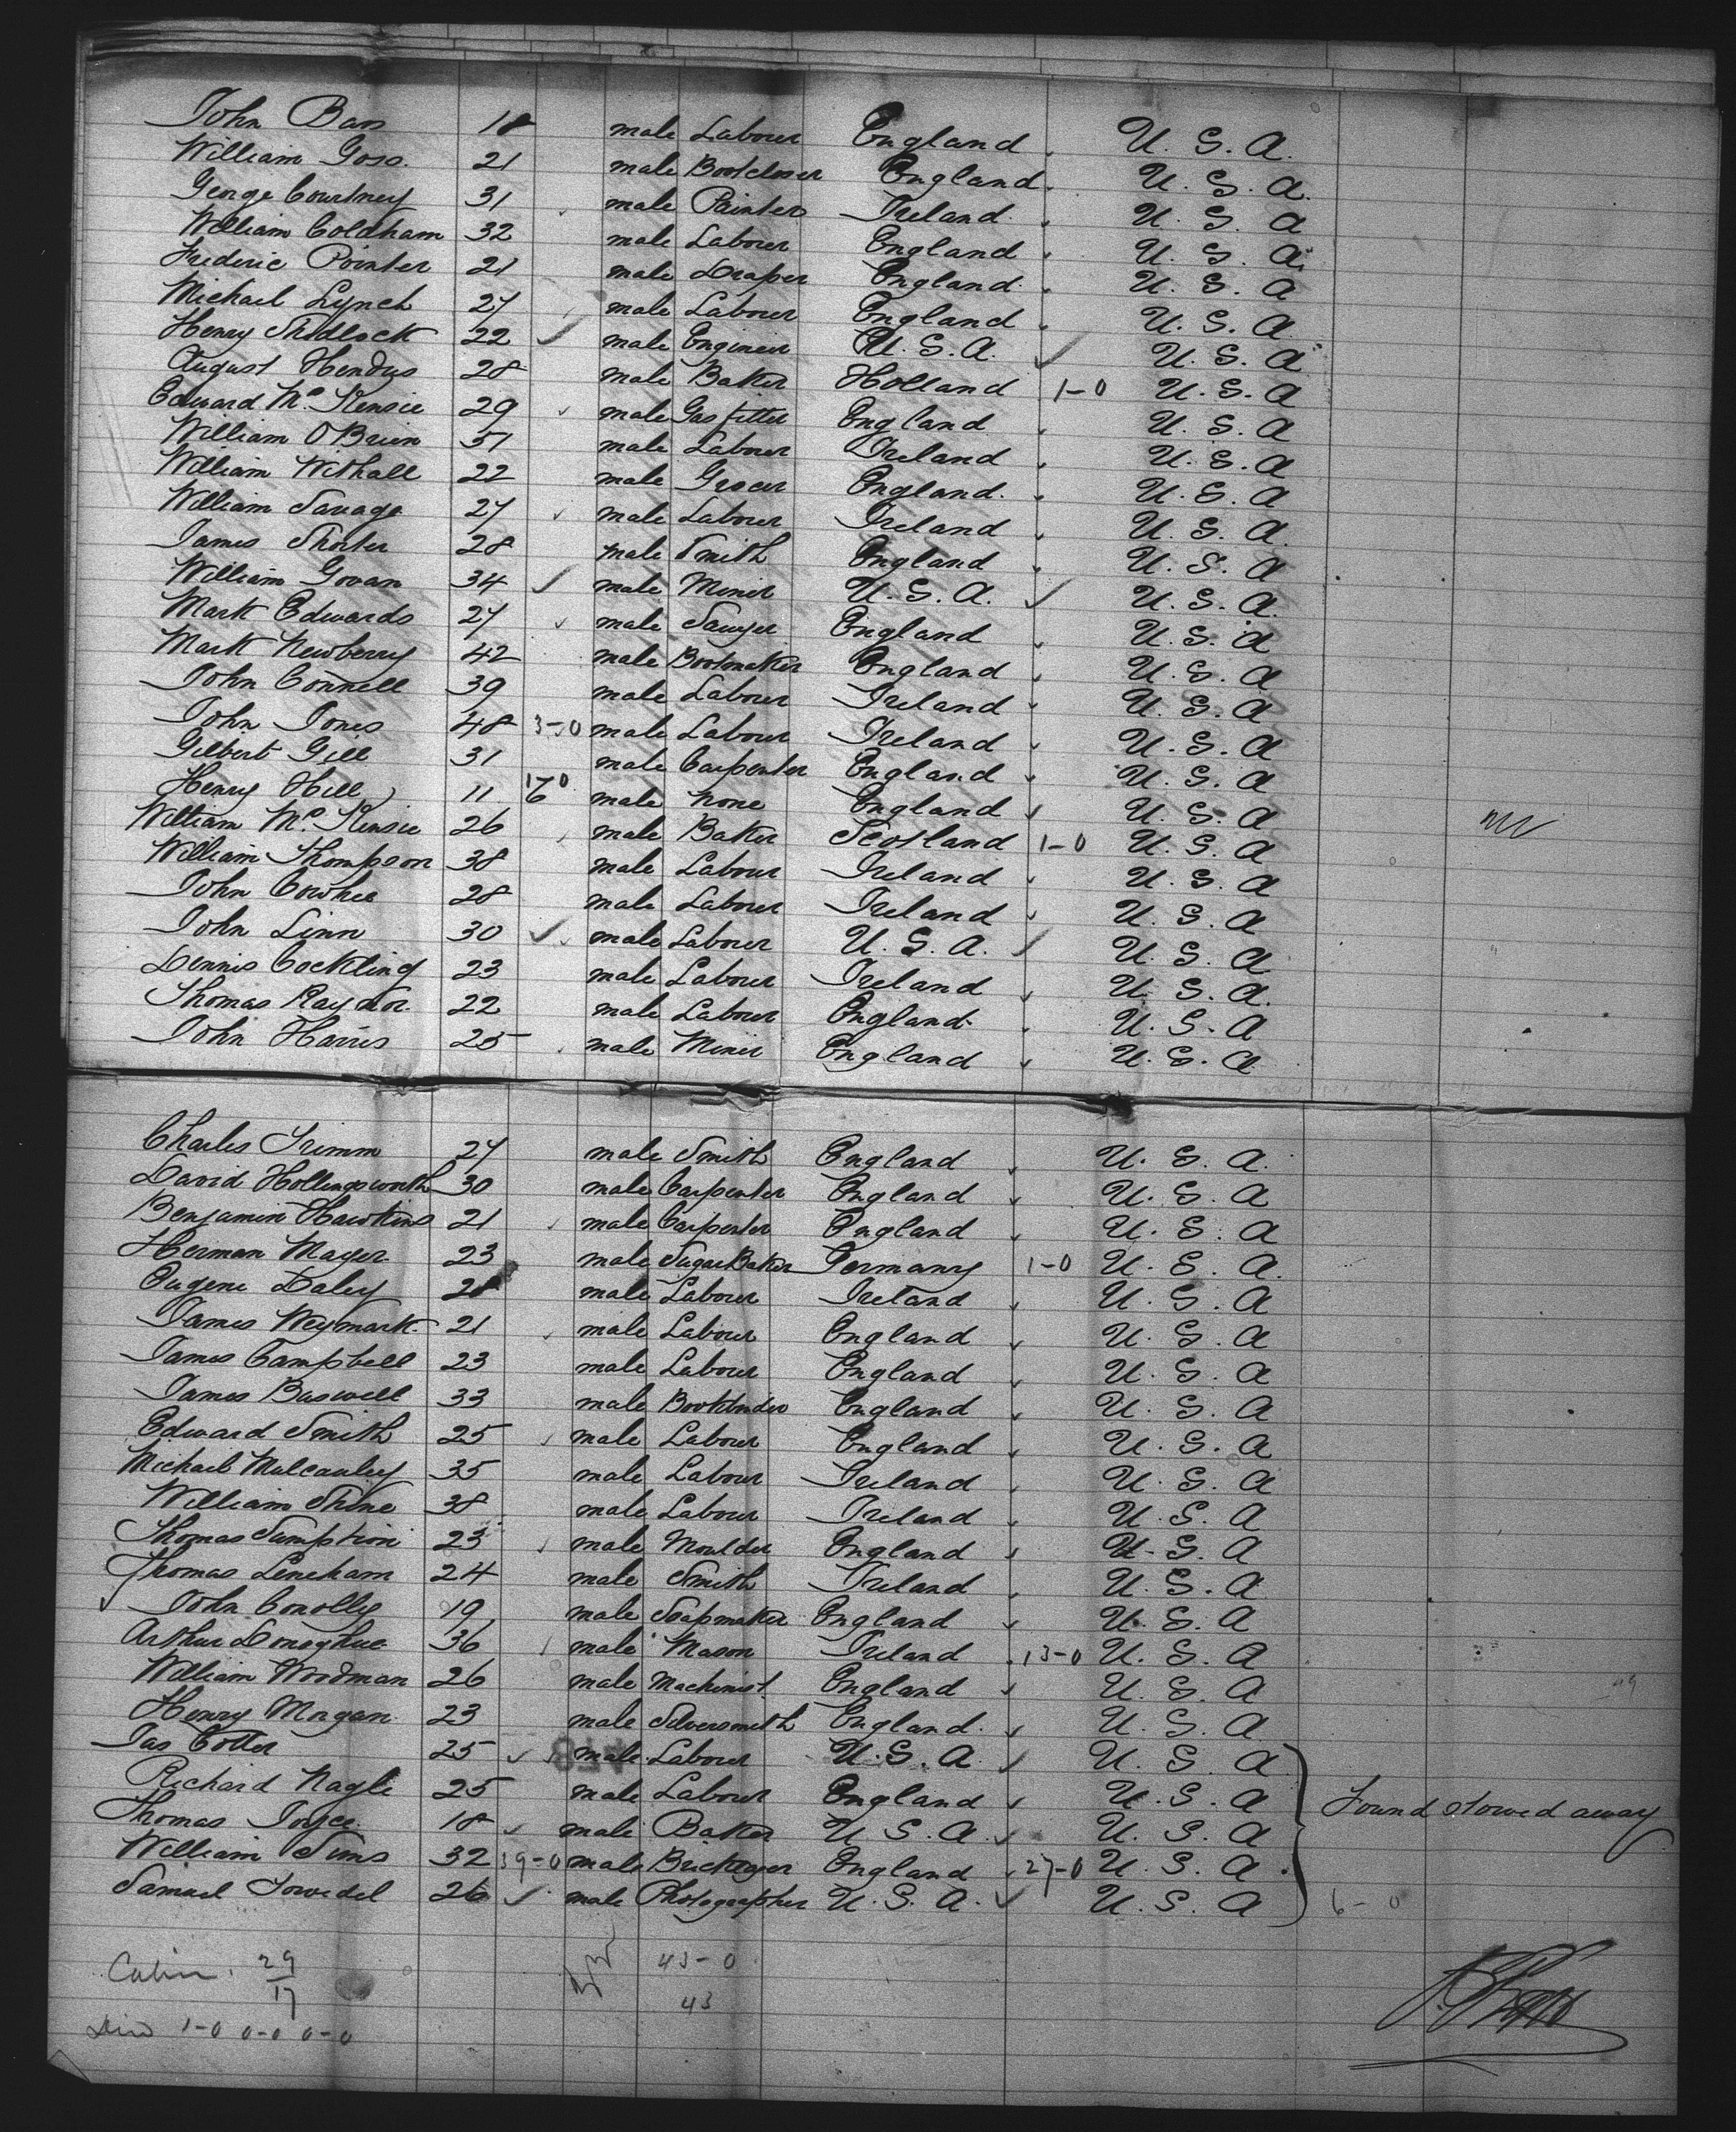 John Bass 18 male Labourer England U. S. A.
William Goss. 21 male Bootcloser England. U. S. A.
George Courtney 31 male Painter Ireland. U. S. A
William Coldham 32 male Labourer England U. S. A.
Frederic Pointer 21 male Draper England U. S. A
Michael Lynch 27 male Labourer England U. S. A.
Henry Shedlock 22 male Engineer U. S. A. U. S. A
August Hendus 28 male Baker Holland 1-0 U. S. A
Edward Mc Kensie 29 male Gas fitter England U. S. A
William O Brien 31 male Labourer Ireland U. S. A
William Withall 22 male Grocer England. U. S. A
William Savage 27 male Labourer Ireland U. S. A.
James Shorter 28 male Smith England U. S. A
William Govan 34 male Miner U. S. A. U. S. A.
Mark Edwards 27 male Sawyer England U. S. A
Mark Newberry 42 male Bootmaker England U. S. A
John Connell 39 male Labourer Ireland U. S. A
John Jones 48 3-0 male Labourer Ireland U. S. A
Gilbert Gill 31 male Carpenter England U. S. A
Henry Hill 11 male None England U. S. A
William Mc Kensie 26 male Baker Scotland 1-0 U. S. A
William Thompson 38 male Labourer Ireland U. S. A
John Cowhee 28 male Labourer Ireland U. S. A
John Linn 30 male Labourer U. S. A. U. S. A
Dennis Cockling 23 male Labourer Ireland U. S. A.
Thomas Raynor 22 male Labourer England U. S. A
John Harris 25 male Miner England U. S. A
Charles Trimm 27 male Smith England U. S. A.
David Hollingsworth 30 male Carpenter England U. S. A
Benjamin Hawkins 21 male Carpenter England U. S. A
Herman Mayer 23 male Sugar Baker Germany 1-0 U. S. A.
Eugene Daley 28 male Labourer Ireland U. S. A
James Weymark. 21 male Labourer England U. S. A
James Campbell 23 male Labourer England U. S. A
James Buswell 33 male Bookbinder England U. S. A
Edward Smith 25 male Labourer England U. S. A
Michael Mulcauley 35 male Labourer Ireland U. S. A
William Shine 38 male Labourer Ireland U. S. A
Thomas Sumption 23 male Moulder England U. S. A
Thomas Lineham 24 male Smith Ireland U. S. A
John Conolly 19 male Soapmaker England U. S. A
Arthur Donoghue 36 male Mason Ireland 13-0 U. S. A
William Woodman 26 male Machinist. England U. S. A
Henry Morgan 23 male Silversmith England. U. S. A
Jas Cotter 25 male Labourer U. S. A U. S. A
Richard Nagle 25 male Labourer England U. S. A Found stowed away
Thomas Joyce 18 male Baker U S. A. U. S. A
William Sims 32 39-0 male Bricklayer England 27-0 U. S. A
Samuel 26 male Photographer U. S. A. U. S. A 6-0
Cabin. 29 43-0
17 43
1-0 0-0 0-0